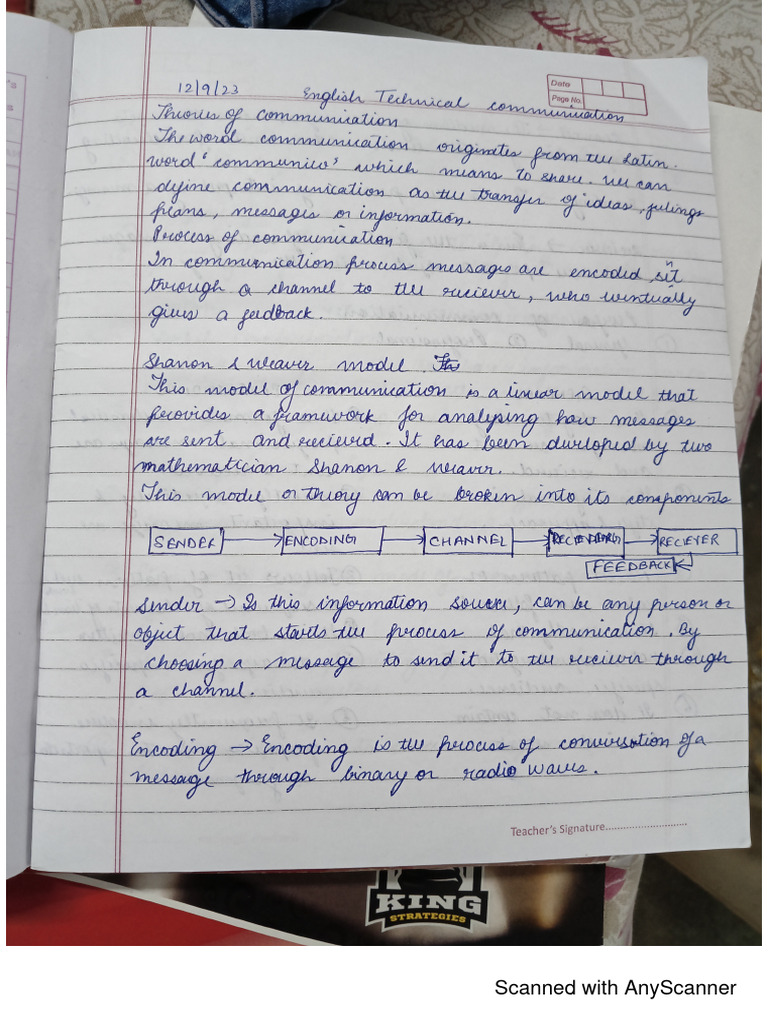 12/9/23 English Technical communication
Date
Page No.
Theories of communication
The word communication originates from the Latin
word 'communico' which means to share. We can
define communication as the transfer of ideas, feelings
plans, messages or information.
Process of communication
In communication process messages are encoded sent
through a channel to the reciever, who eventually
gives a feedback.
Shanon & Weaver model.
This model of communication is a linear model that
provides a framework for analysing how messages
are sent and recieved. It has been developed by two
mathematician: Shanon & Weaver.
This model or theory can be broken into its components
SENDER → ENCODING → CHANNEL → → RECIEVER
FEEDBACK
Sender → Is this information source, can be any person or
object that starts the process of communication. By
choosing a message to send it to the reciever through
a channel.
Encoding → Encoding is the process of conversation of a
message through binary or radio waves.
Teacher's Signature............................
KING
STRATEGIES
Scanned with AnyScanner